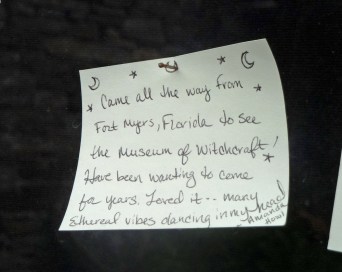 Came all the way from
Fort Myers, Florida to see
the Museum of Witchcraft!
Have been wanting to come
for years. Loved it -- many
Ethereal vibes dancing in my head
- Amanda